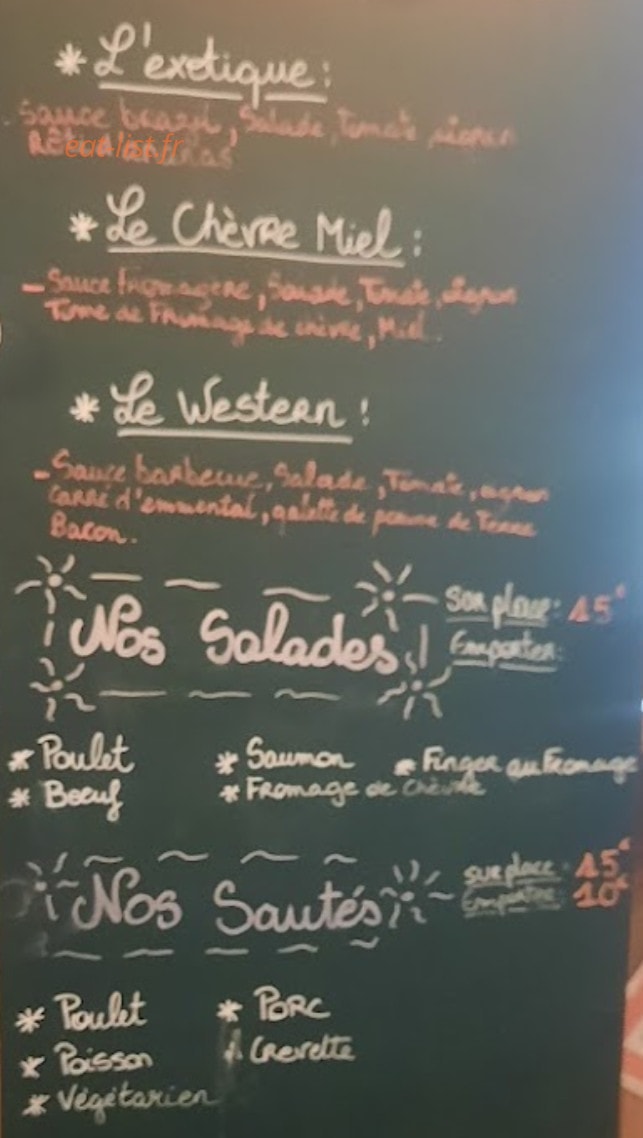 * L'exotique :
Sauce brazil, Salade, Tomate, oignon
Rôti ananas
eat-list.fr
* Le Chèvre Miel :
- Sauce Fromagère, Salade, Tomate, oignon
Tome de Fromage de chèvre, Miel.
* Le Western :
- Sauce barbecue, Salade, Tomate, oignon
Carré d'emmental, galette de pomme de Terre
Bacon.
Nos Salades
Sur place : 15€
Emporter :
* Poulet * Saumon * Finger au Fromage
* Boeuf * Fromage de Chèvre
Nos Sautés
sur place : 15€
Emporter : 10€
* Poulet * Porc
* Poisson * Crevette
* Végétarien